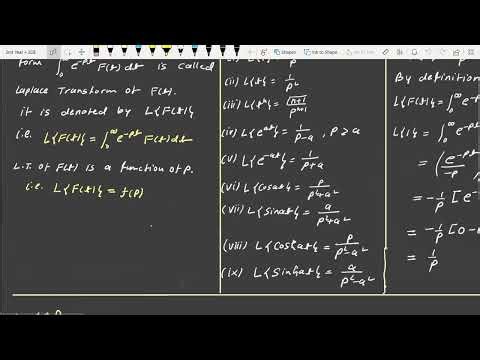 2nd Year + 328
Shapes
Ink to Shape
form ∫₀^∞ e^-pt F(t) dt is called
Laplace Transform of F(t).
it is denoted by L{F(t)}
i.e. L{F(t)} = ∫₀^∞ e^-pt F(t) dt
L.T. of F(t) is a function of p.
i.e. L{F(t)} = f(p)
(ii) L{t} = 1/p²
(iii) L{tⁿ} = √(n+1)/pⁿ⁺¹
(iv) L{e^at} = 1/(p-a), p≥a
(v) L{e^-at} = 1/(p+a)
(vi) L{cosat} = p/(p²+a²)
(vii) L{sinat} = a/(p²+a²)
(viii) L{coshat} = p/(p²-a²)
(ix) L{sinhat} = a/(p²-a²)
By definition
L{F(t)} = ∫₀^∞ e
L{1} = ∫₀^∞ e
= (e^-pt/-p
= -1/p [e
= -1/p [0-
= 1/p